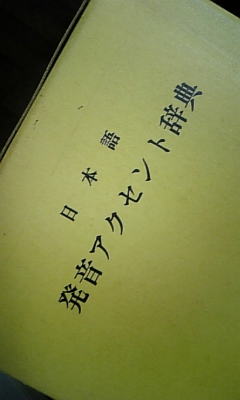 日本語
発音アクセント辞典